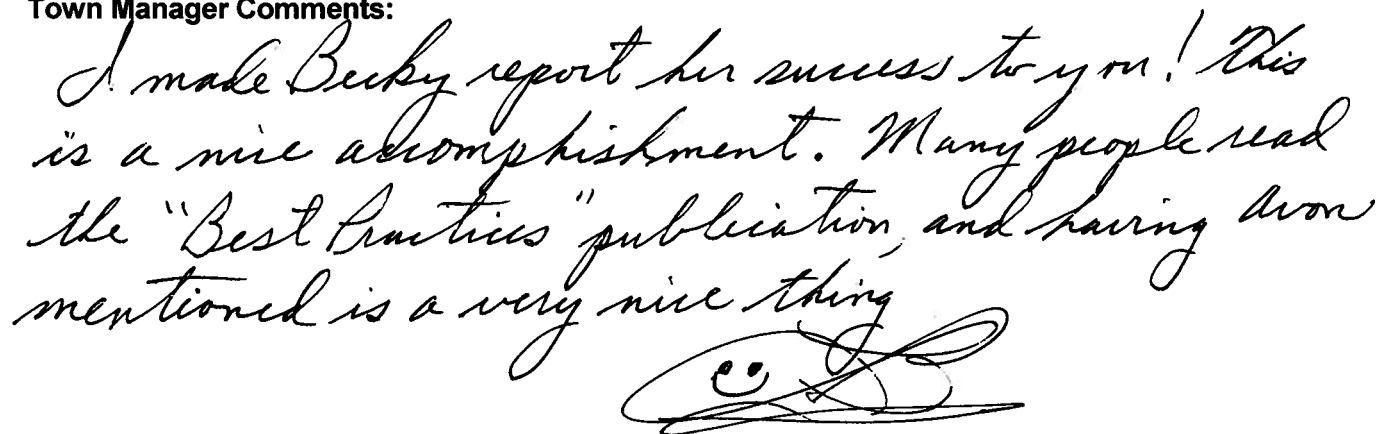 Town Manager Comments:
I made Becky report her success to you! This
is a nice accomplishment. Many people read
the "Best Practices" publication, and having Avon
mentioned is a very nice thing